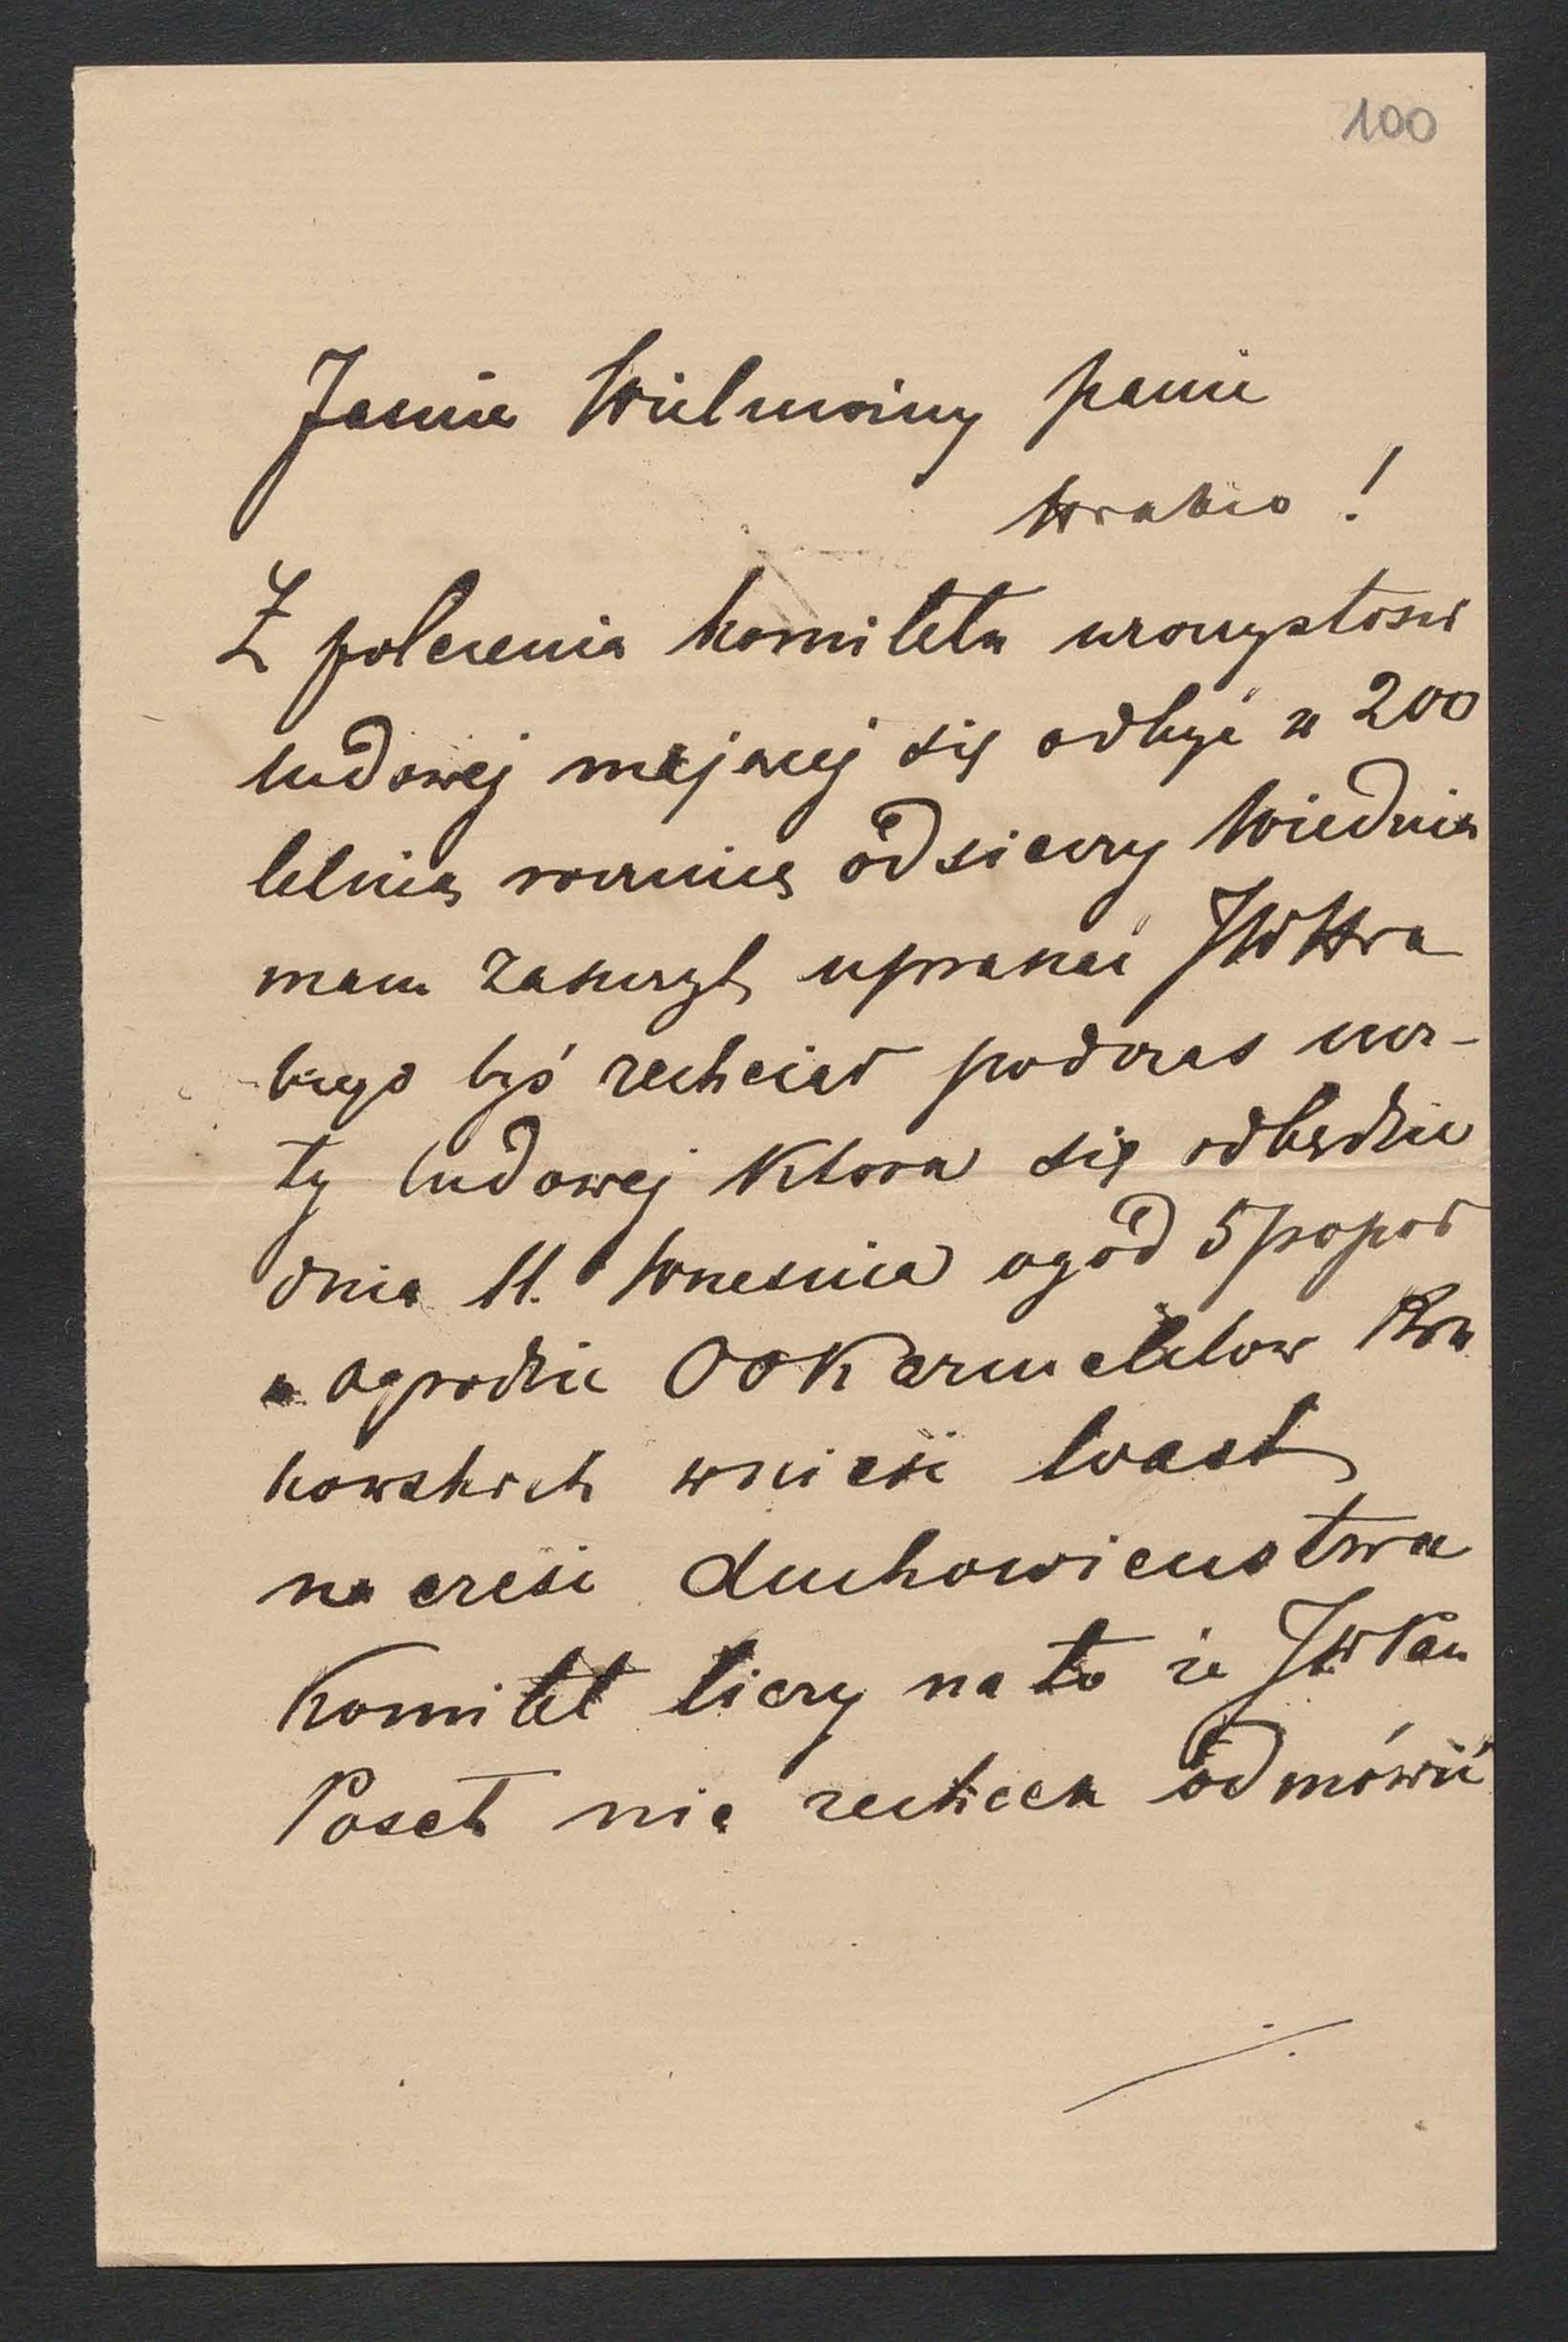 100
Jasnie Wielmożny panie
Hrabio !
Z polecenia komitetu uroczystosci
ludowej mającej się odbyć w 200
letnią rocznicę odsieczy Wiednia
mam zaszczyt upraszać JWHra
biego byś zechciał podczas
ty ludowej ktora się odbędzie
dnia 11. Wrzesnia o god 5 popoł
w ogrodzie OO Karmelitow Kra
kowskich wnieść toast
na cześć duchowienstwa
Komitet liczy na to że JW Pan
Poseł nie zechcesz odmówić